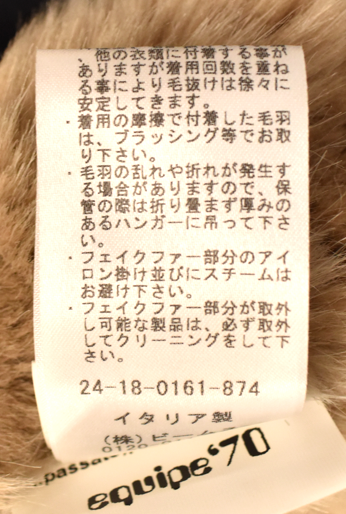 、他の衣類に付着する事が
ありますが着用回数を重ね
る事により毛抜けは徐々に
安定してきます。
・着用の摩擦で付着した毛羽
は、ブラッシング等でお取
り下さい。
・毛羽の乱れや折れが発生す
る場合がありますので、保
管の際は折り畳まず厚みの
あるハンガーに吊って下さ
い。
・フェイクファー部分のアイ
ロン掛け並びにスチームは
お避け下さい。
・フェイクファー部分が取外
し可能な製品は、必ず取外
してクリーニングをして下
さい。
24-18-0161-874
イタリア製
(株)ビー
0120
equipe'70